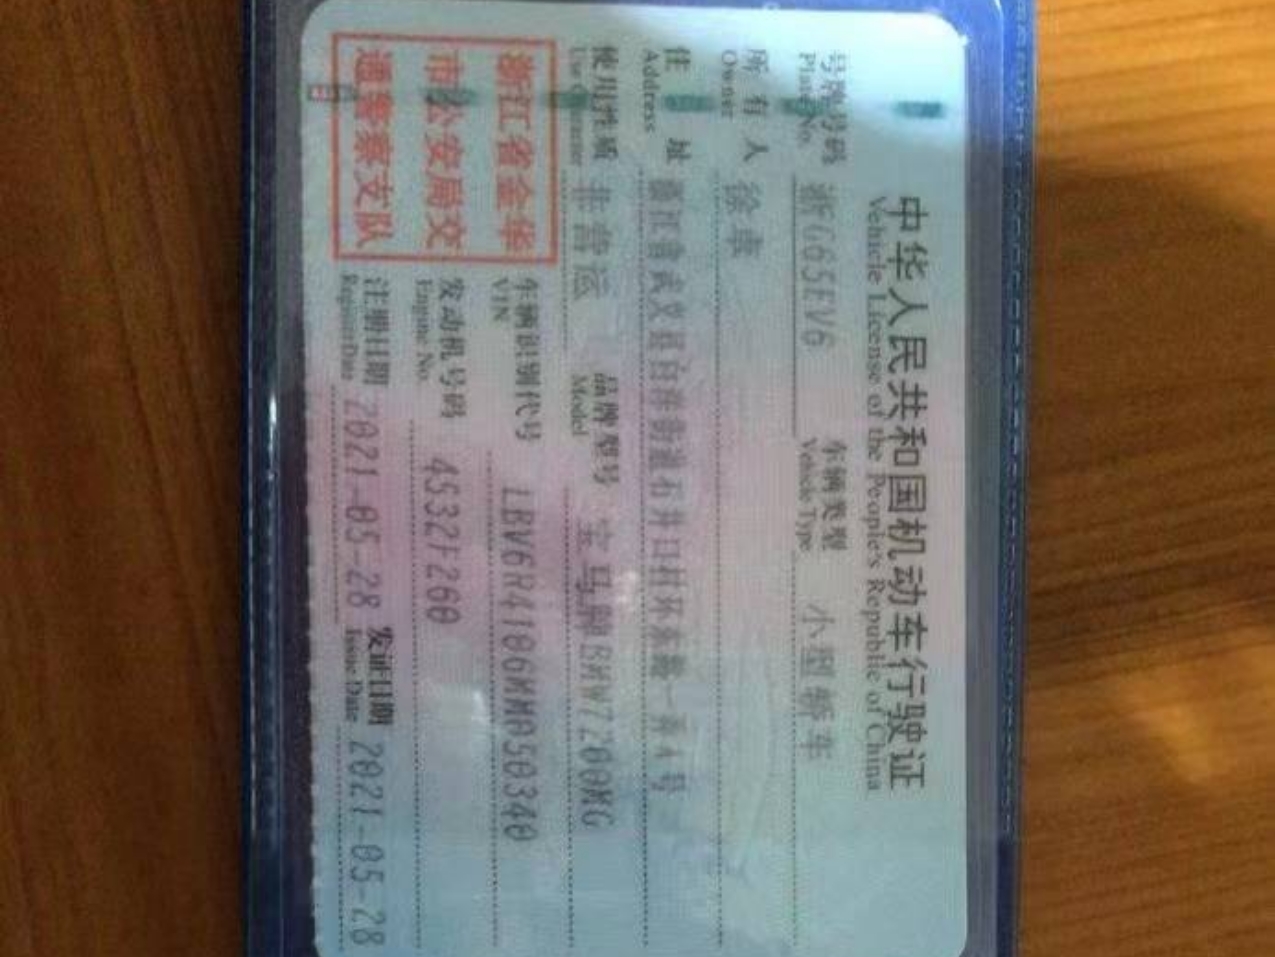 中华人民共和国机动车行驶证
Vehicle License of the People's Republic of China
号牌号码 浙G65EV6 车辆类型 小型轿车
Plate No. Vehicle Type
所有人 徐
Owner
住址 浙江省武义县白洋街道石井口村环东路一弄 号
Address
使用性质 非营运 品牌型号 宝马牌BMW7200MG
Use Character Model
浙江省金华
市公安局交
通警察支队
车辆识别代号 LBV6R4106MMA50340
VIN
发动机号码 4532F260
Engine No.
注册日期 2021-05-28 发证日期 2021-05-28
Register Date Issue Date